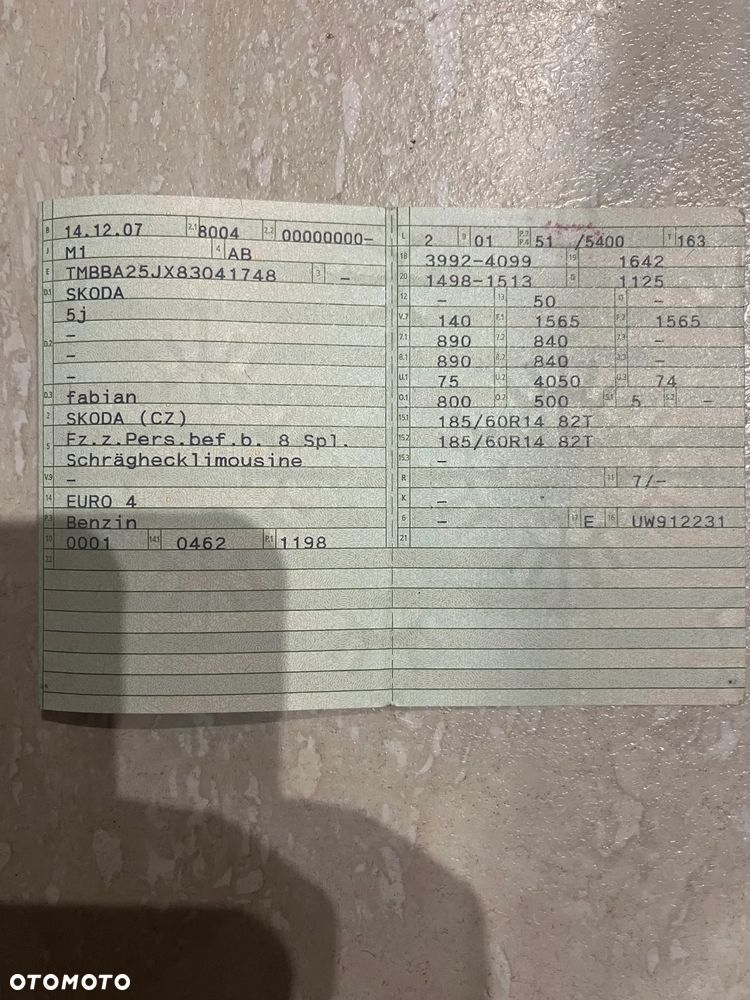 B 14.12.07 2.1 8004 2.2 00000000-
J M1 4 AB
E TMBBA25JX83041748 3 -
D.1 SKODA
5j
-
D.2 -
-
D.3 fabian
2 SKODA (CZ)
5 Fz.z.Pers.bef.b. 8 Spl.
Schräghecklimousine
V.9 -
14 EURO 4
P.3 Benzin
10 0001 14.1 0462 P.1 1198
22
L 2 9 01 P.2 P.4 51 /5400 T 163
18 3992-4099 19 1642
20 1498-1513 G 1125
12 - 13 50 Q -
V.7 140 F.1 1565 F.2 1565
7.1 890 7.2 840 7.3 -
8.1 890 8.2 840 8.3 -
U.1 75 U.2 4050 U.3 74
O.1 800 O.2 500 S.1 5 S.2 -
15.1 185/60R14 82T
15.2 185/60R14 82T
15.3 -
R 11 7/-
K -
6 - 17 E 16 UW912231
21
OTOMOTO